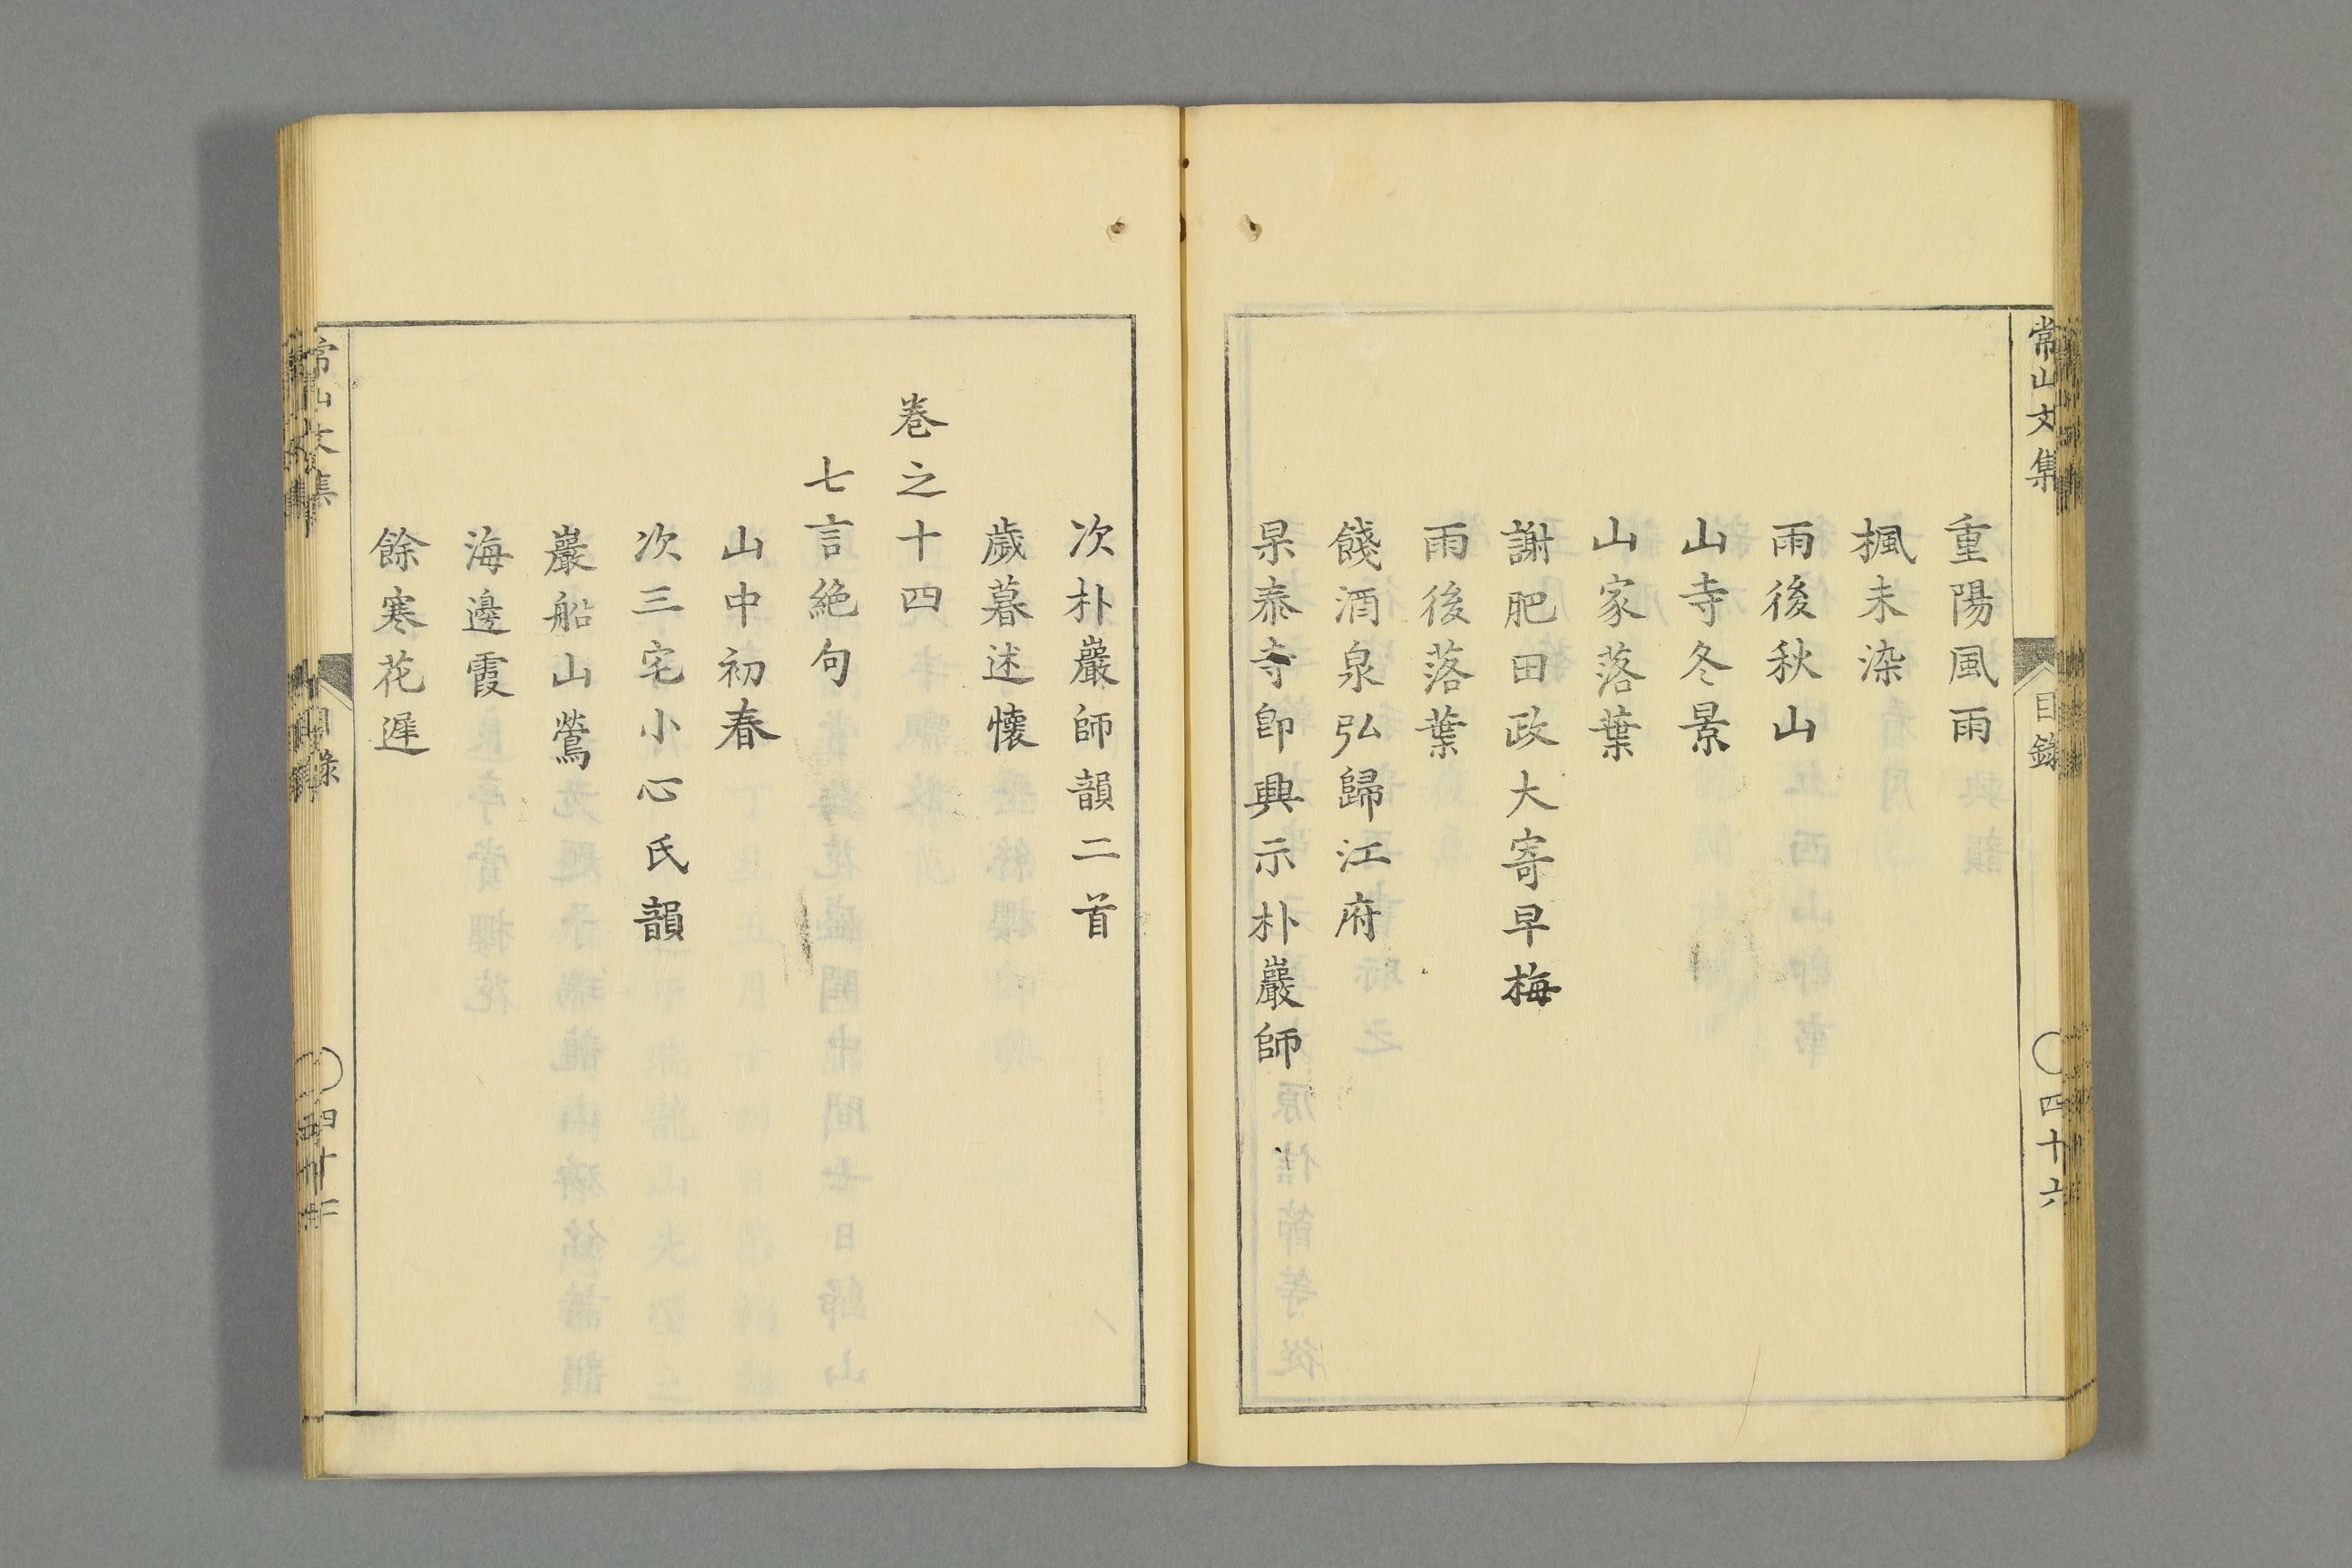 常山文集
目錄
四十六
重陽風雨
楓未染
雨後秋山
山寺冬景
山家落葉
謝肥田政大寄早梅
雨後落葉
餞酒泉弘歸江府
杲泰寺卽興示朴巖師
次朴巖師韻二首
歲暮述懷
巻之十四
七言絕句
山中初春
次三宅小心氏韻
巖船山鶯
海邊霞
餘寒花遲
常山文集
目錄